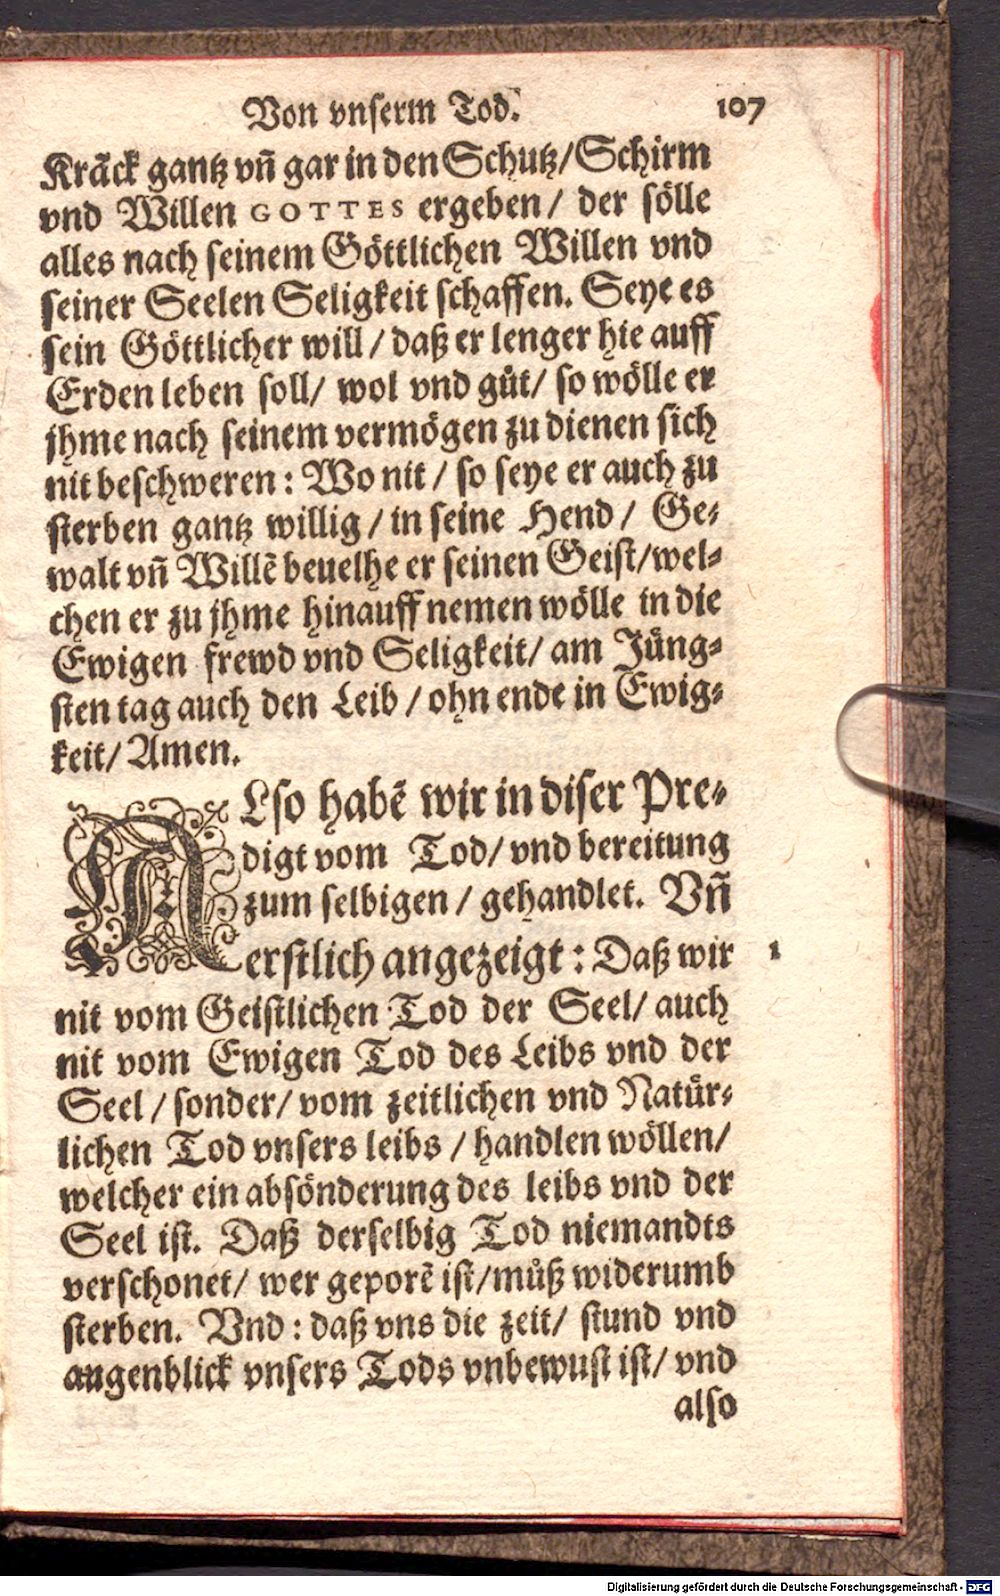 Von vnſerm Tod. 107
Krãck gantz vñ gar in den Schutz/Schirm
vnd Willen GOTTES ergeben/ der ſölle
alles nach ſeinem Göttlichen Willen vnd
ſeiner Seelen Seligkeit ſchaffen. Seye es
ſein Göttlicher will/ daß er lenger hie auff
Erden leben ſoll/ wol vnd gůt/ ſo wölle er
jhme nach ſeinem vermögen zu dienen ſich
nit beſchweren: Wo nit/ ſo ſeye er auch zu
ſterben gantz willig/ in ſeine Hend/ Ge⸗
walt vñ Willẽ beuelhe er ſeinen Geiſt/wel⸗
chen er zu jhme hinauff nemen wölle in die
Ewigen frewd vnd Seligkeit/ am Jüng⸗
ſten tag auch den Leib/ ohn ende in Ewig⸗
keit/ Amen.
ALſo habẽ wir in diſer Pre⸗
digt vom Tod/ vnd bereitung
zum ſelbigen/ gehandlet. Vñ
erſtlich angezeigt: Daß wir 1
nit vom Geiſtlichen Tod der Seel/ auch
nit vom Ewigen Tod des Leibs vnd der
Seel/ ſonder/ vom zeitlichen vnd Natür⸗
lichen Tod vnſers leibs/ handlen wöllen/
welcher ein abſönderung des leibs vnd der
Seel iſt. Daß derſelbig Tod niemandts
verſchonet/ wer geporẽ iſt/můß widerumb
ſterben. Vnd: daß vns die zeit/ ſtund vnd
augenblick vnſers Tods vnbewuſt iſt/ vnd
alſo
Digitalisierung gefördert durch die Deutsche Forschungsgemeinschaft - DFG